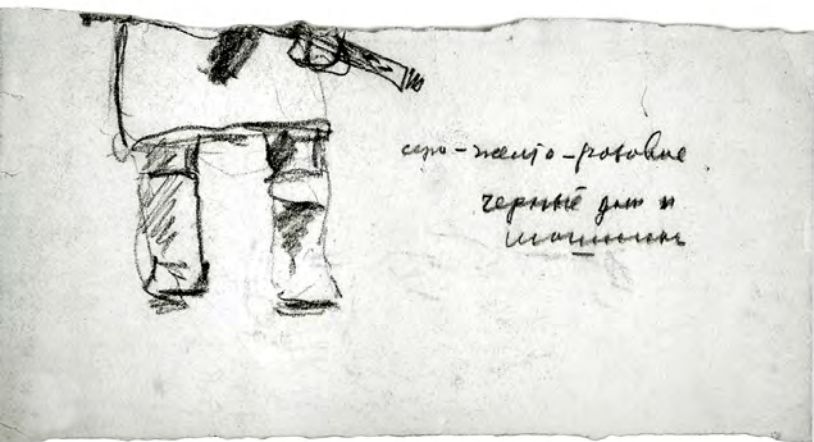 серо-желто-розовые
черные дым и
машины